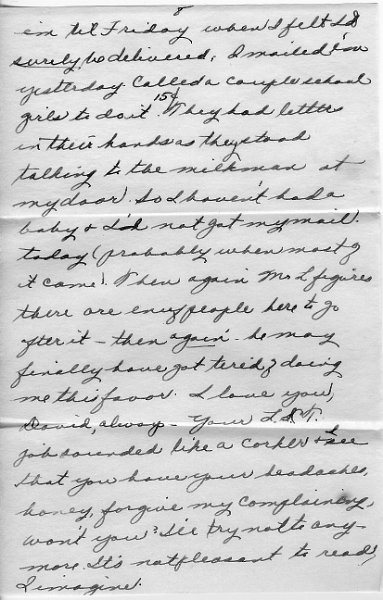 8
em til Friday when I felt I'd
surely be delivered. I mailed 'em
yesterday. Called a couple school
girls to do it. 15¢ They had letters
in their hands as they stood
talking to the milkman at
my door. So I haven't had a
baby & I'd not got my mail
today (probably when most of
it came). Then again Mr L figures
there are enuf people here to go
after it - then again - he may
finally have got tired of doing
me this favor. I love you,
David, always - Your L.D.T.
job sounded like a corker & I see
that you have your headaches,
honey, forgive my complaining,
won't you? I'll try not to any-
more. It's not pleasant to read,
I imagine.